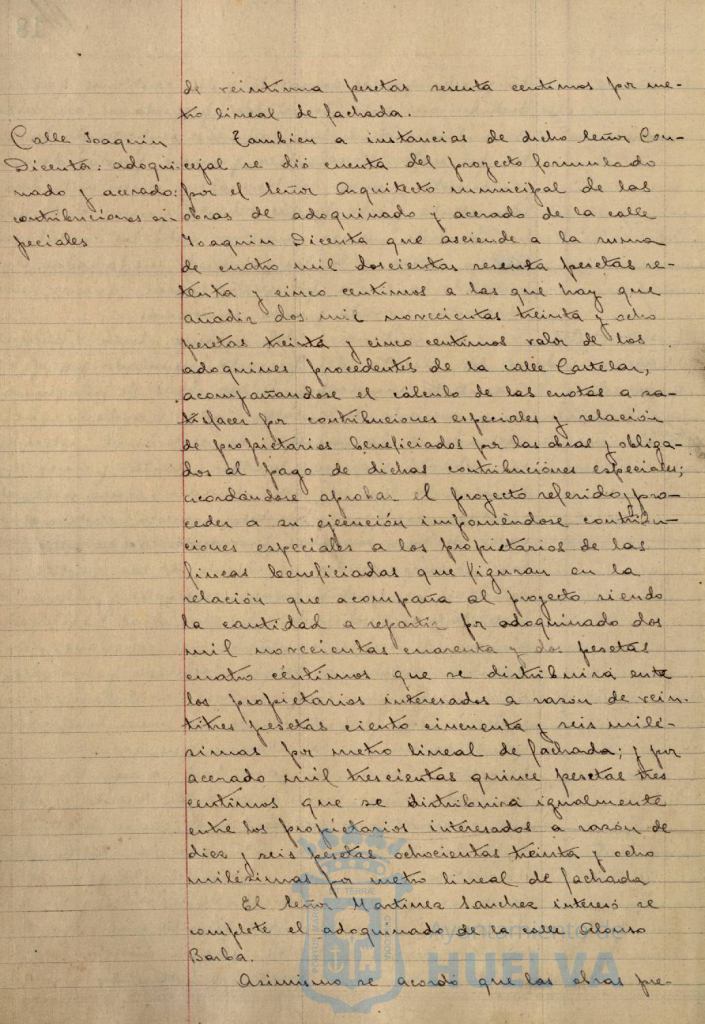 de veintiuna pesetas sesenta centimos por me-
tro lineal de fachada.
Calle Joaquin
Dicenta: adoqui-
nado y acerado:
contribuciones es-
peciales
Tambien a instancias de dicho Señor Con-
cejal se dió cuenta del proyecto formulado
por el Señor Arquitecto municipal de las
obras de adoquinado y acerado de la calle
Joaquin Dicenta que asciende a la suma
de cuatro mil doscientas sesenta pesetas se-
tenta y cinco centimos a las que hay que
añadir dos mil novecientas treinta y ocho
pesetas treinta y cinco centimos valor de los
adoquines procedentes de la calle Castelar,
acompañandose el cálculo de las cuotas a sa-
tisfacer por contribuciones especiales y relación
de propietarios beneficiados por las obras y obliga-
dos al pago de dichas contribuciones especiales;
acordándose aprobar el proyecto referido, y pro-
ceder a su ejecución imponiéndose contribu-
ciones especiales a los propietarios de las
fincas beneficiadas que figuran en la
relación que acompaña al proyecto siendo
la cantidad a repartir por adoquinado dos
mil novecientas cuarenta y dos pesetas
cuatro céntimos que se distribuirá ente
los propietarios interesados a razón de vein-
titres pesetas ciento cincuenta y seis milé-
simas por metro lineal de fachada; y por
acerado mil trescientas quince pesetas tres
centimos que se distribuirá igualmente
entre los propietarios interesados a razón de
diez y seis pesetas ochocientas treinta y ocho
milésimas por metro lineal de fachada
El Señor Martinez Sanchez interesó se
complete el adoquinado de la calle Alonso
Barba.
Asimismo se acordó que las obras pre-
Ayuntamiento de
HUELVA